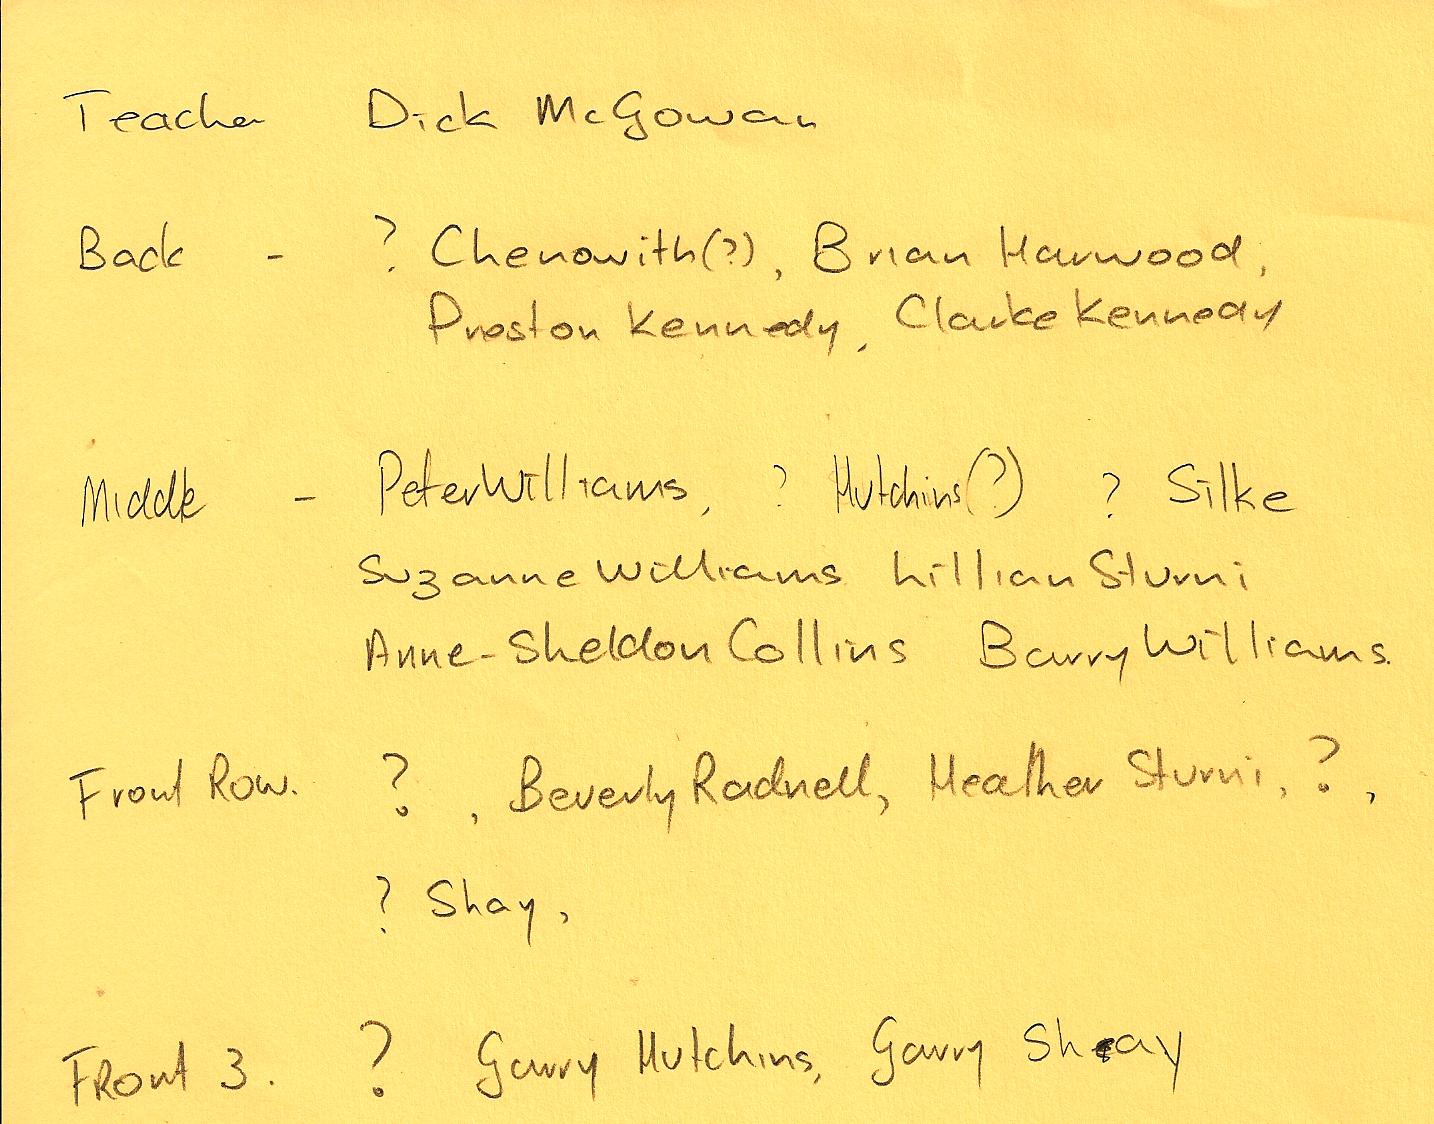 Teacher Dick McGowan
Back - ? Chenowith(?), Brian Harwood,
Preston Kennedy, Clarke Kennedy
Middle - Peter Williams, ? Hutchins(?) ? Silke
Suzanne Williams Lillian Sturni
Anne-Sheldon Collins Barry Williams.
Front Row. ?, Beverly Radnell, Heather Sturni, ?,
? Shay,
Front 3. ? Garry Hutchins, Garry Shay